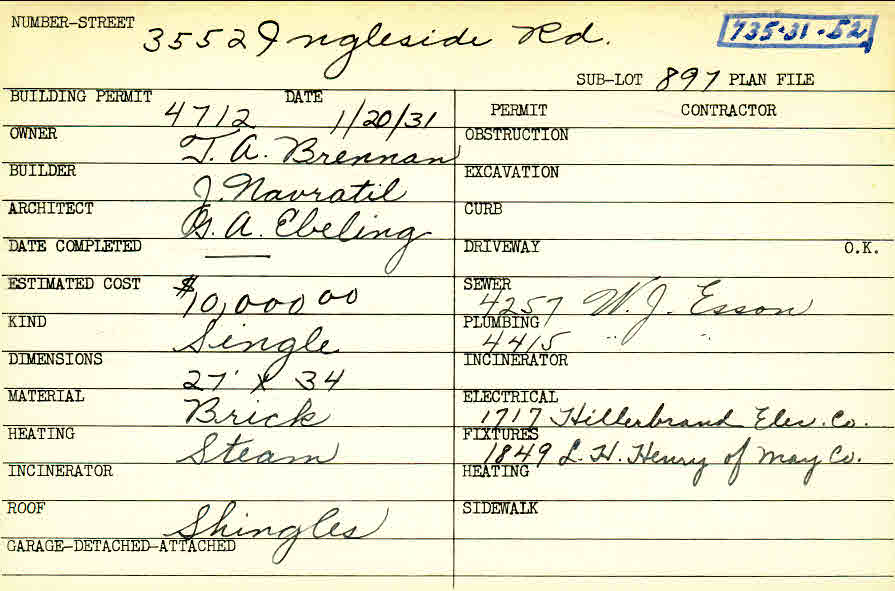 NUMBER-STREET 3552 Ingleside Rd. 735-31-52
SUB-LOT 897 PLAN FILE
BUILDING PERMIT 4712 DATE 1/20/31
OWNER T. A. Brennan
BUILDER J. Navratil
ARCHITECT G. A. Ebeling
DATE COMPLETED —
ESTIMATED COST $10,000 00
KIND Single
DIMENSIONS 27' x 34
MATERIAL Brick
HEATING Steam
INCINERATOR
ROOF Shingles
GARAGE-DETACHED-ATTACHED
PERMIT CONTRACTOR
OBSTRUCTION
EXCAVATION
CURB
DRIVEWAY O.K.
SEWER 4257 W. J. Esson
PLUMBING 4415 " "
INCINERATOR
ELECTRICAL 1717 Hillerbrand Elec. Co.
FIXTURES 1849 L. H. Henry of May Co.
HEATING
SIDEWALK